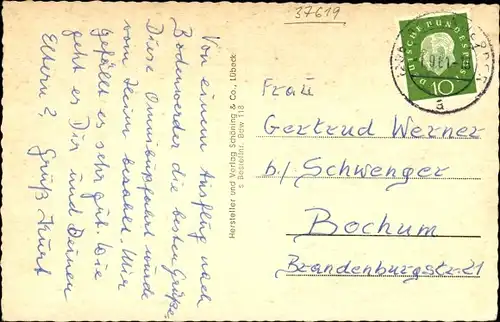 37619
Von einem Ausflug nach
Bodenwerder die besten Grüße.
Diese Omnibusfahrt wurde
vom Heim bezahlt. Mir
gefällt es sehr gut. Wie
geht es Dir und Deinen
Eltern?, Gruß Kurt
Hersteller und Verlag Schöning & Co., Lübeck
Bestellnr. Bdw 118
DEUTSCHE BUNDESPOST
10
a
Frau
Gertrud Werner
b/ Schwenger
Bochum
Brandenburgstr. 21